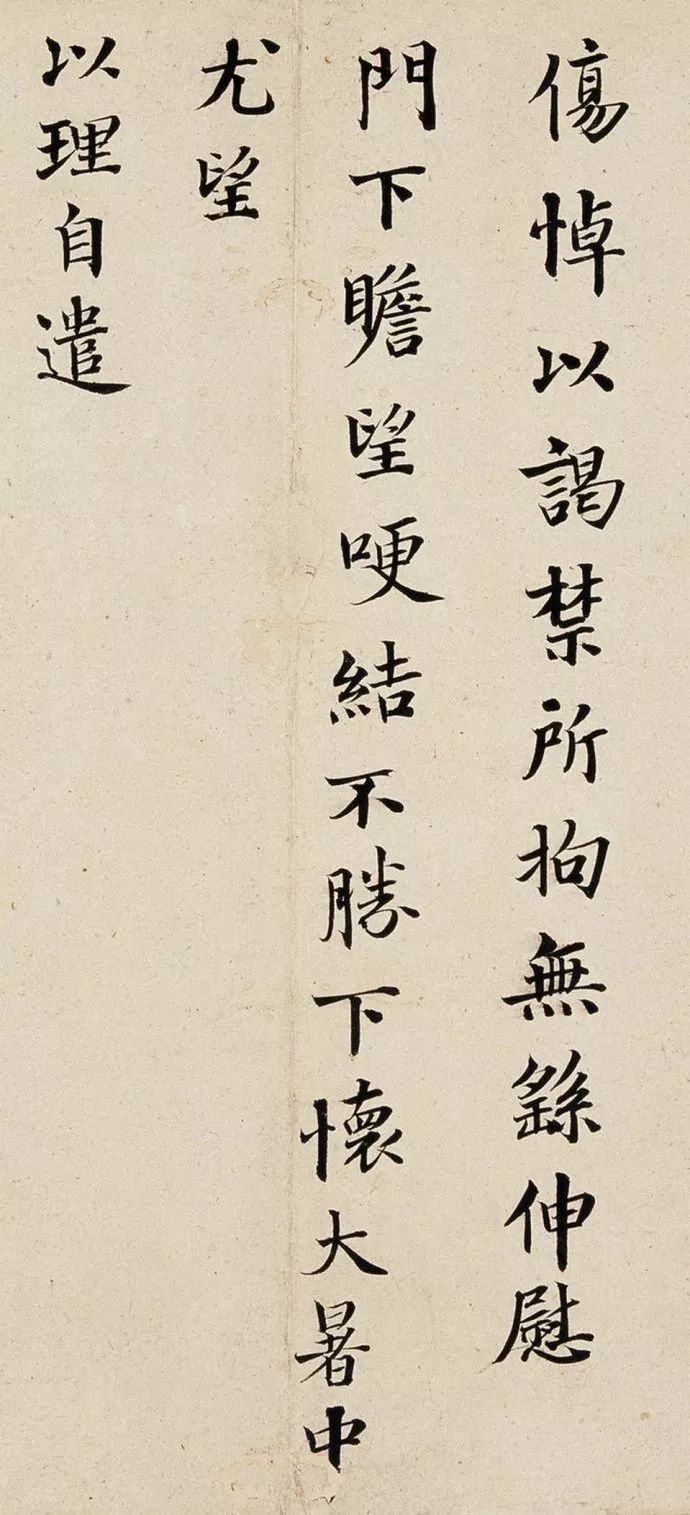 傷悼以謁禁所拘無繇伸慰
門下瞻望哽結不勝下懷大暑中
尤望
以理自遣